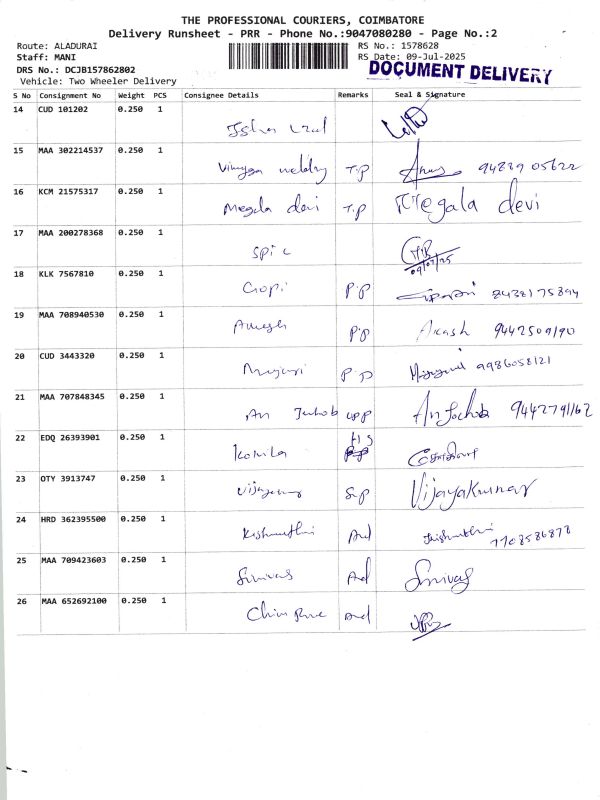 THE PROFESSIONAL COURIERS, COIMBATORE
Delivery Runsheet - PRR - Phone No.:9047080280 - Page No.:2
Route: ALADURAI
RS No.: 1578628
Staff: MANI
RS Date: 09-Jul-2025
DRS No.: DCJB157862802
DOCUMENT DELIVERY
Vehicle: Two Wheeler Delivery
S No Consignment No Weight PCS Consignee Details Remarks Seal & Signature
14 CUD 101202 0.250 1
15 MAA 302214537 0.250 1 T.P 94889 05622
16 KCM 21575317 0.250 1 Megala devi T.P Megala devi
17 MAA 200278368 0.250 1 Spic 09/07/25
18 KLK 7567810 0.250 1 Gopi P.P 8438175894
19 MAA 708940530 0.250 1 P.P Akash 9442509190
20 CUD 3443320 0.250 1 P.P 9986058121
21 MAA 707848345 0.250 1 9442791162
22 EDQ 26393901 0.250 1 Komila
23 OTY 3913747 0.250 1 S.P Vijayakumar
24 HRD 362395500 0.250 1 7708586878
25 MAA 709423603 0.250 1 Srinivas Srinivas
26 MAA 652692100 0.250 1